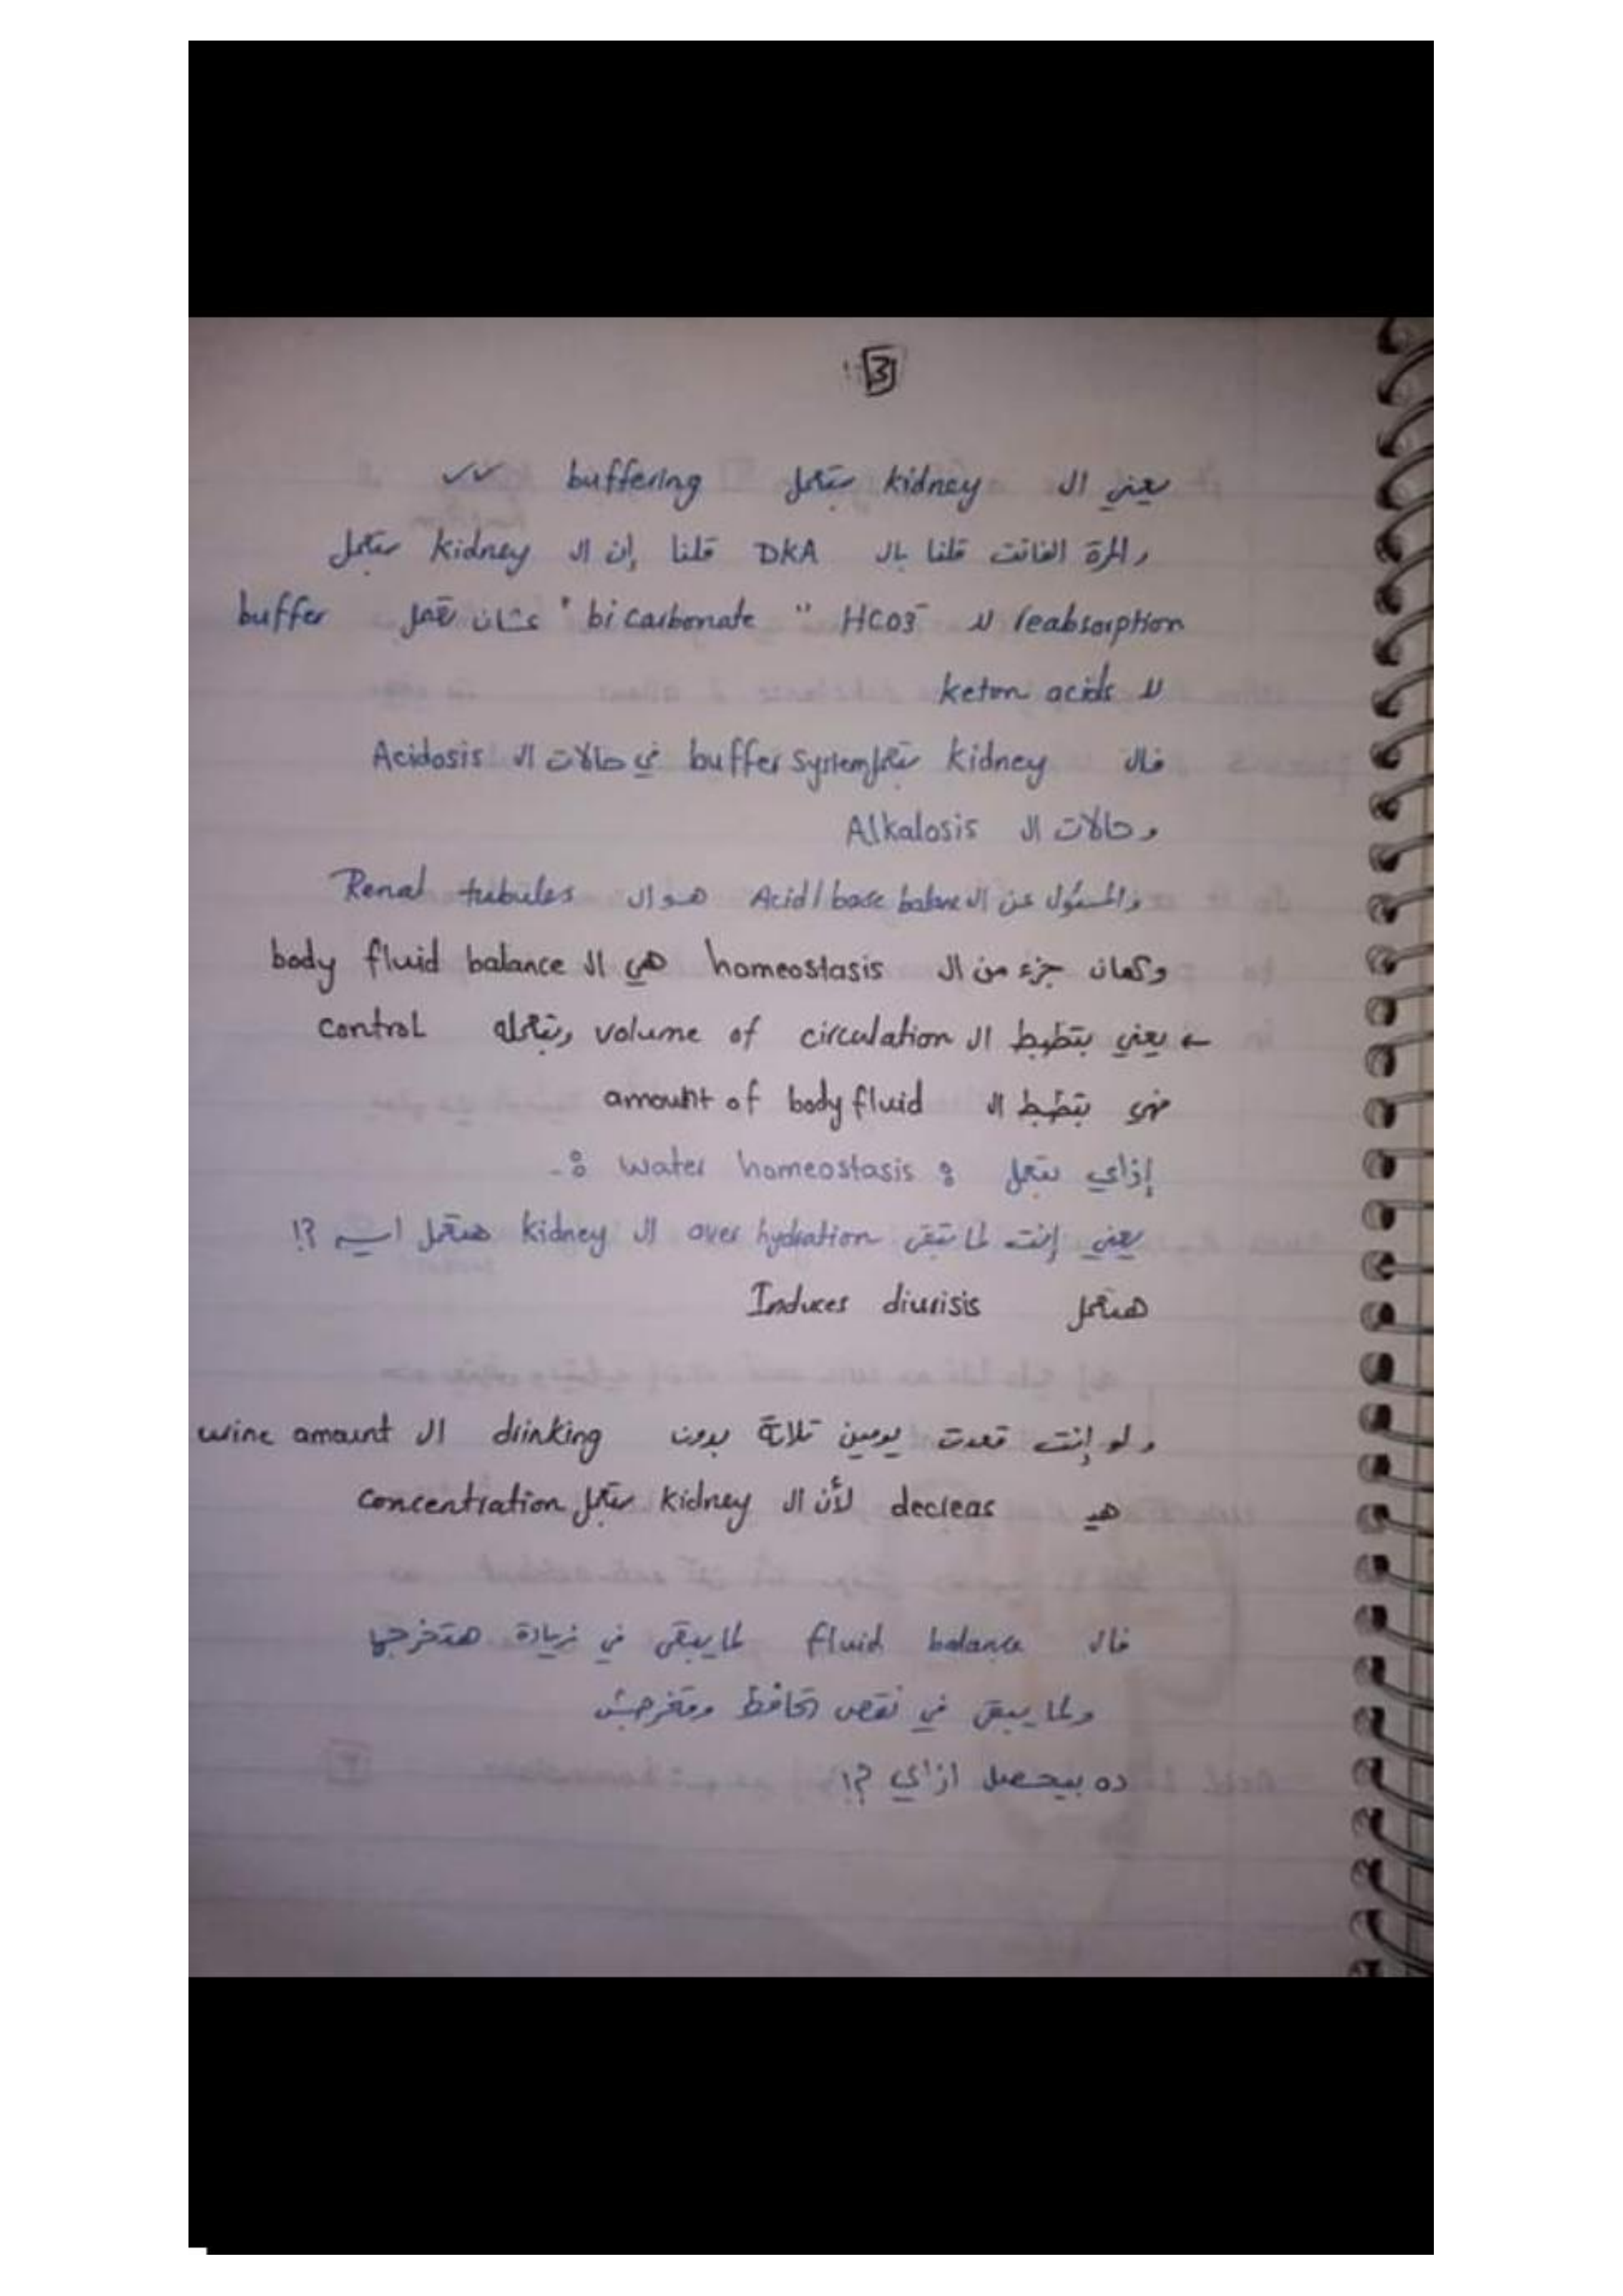 3
يعني ال kidney بتعمل buffering ✓✓
والمرة الفاتت قلنا بال DKA قلنا إن ال kidney بتعمل
reabsorption لل HCO3⁻ " bicarbonate " عشان تعمل buffer
لل keton acids
فال kidney بتعمل buffer system في حالات ال Acidosis
وحالات ال Alkalosis
والمسئول عن ال Acid/base balance هو ال Renal tubules
وكمان جزء من ال homeostasis هي ال body fluid balance
← يعني بتظبط ال volume of circulation وبتعمله control
فهي بتظبط ال amount of body fluid
إزاي بتعمل : water homeostasis :-
يعني إنت لما تبقى over hydration ال kidney هتعمل ايه ؟!
هتعمل Induces diurisis
ولو إنت قعدت يومين تلاتة بدون drinking ال urine amount
هيـ decreas لأن ال kidney بتعمل concentration
فال fluid balance لما يبقى في زيادة هتخرجها
ولما يبقى في نقص تحافظ ومتخرجش
ده بيحصل ازاي ؟!